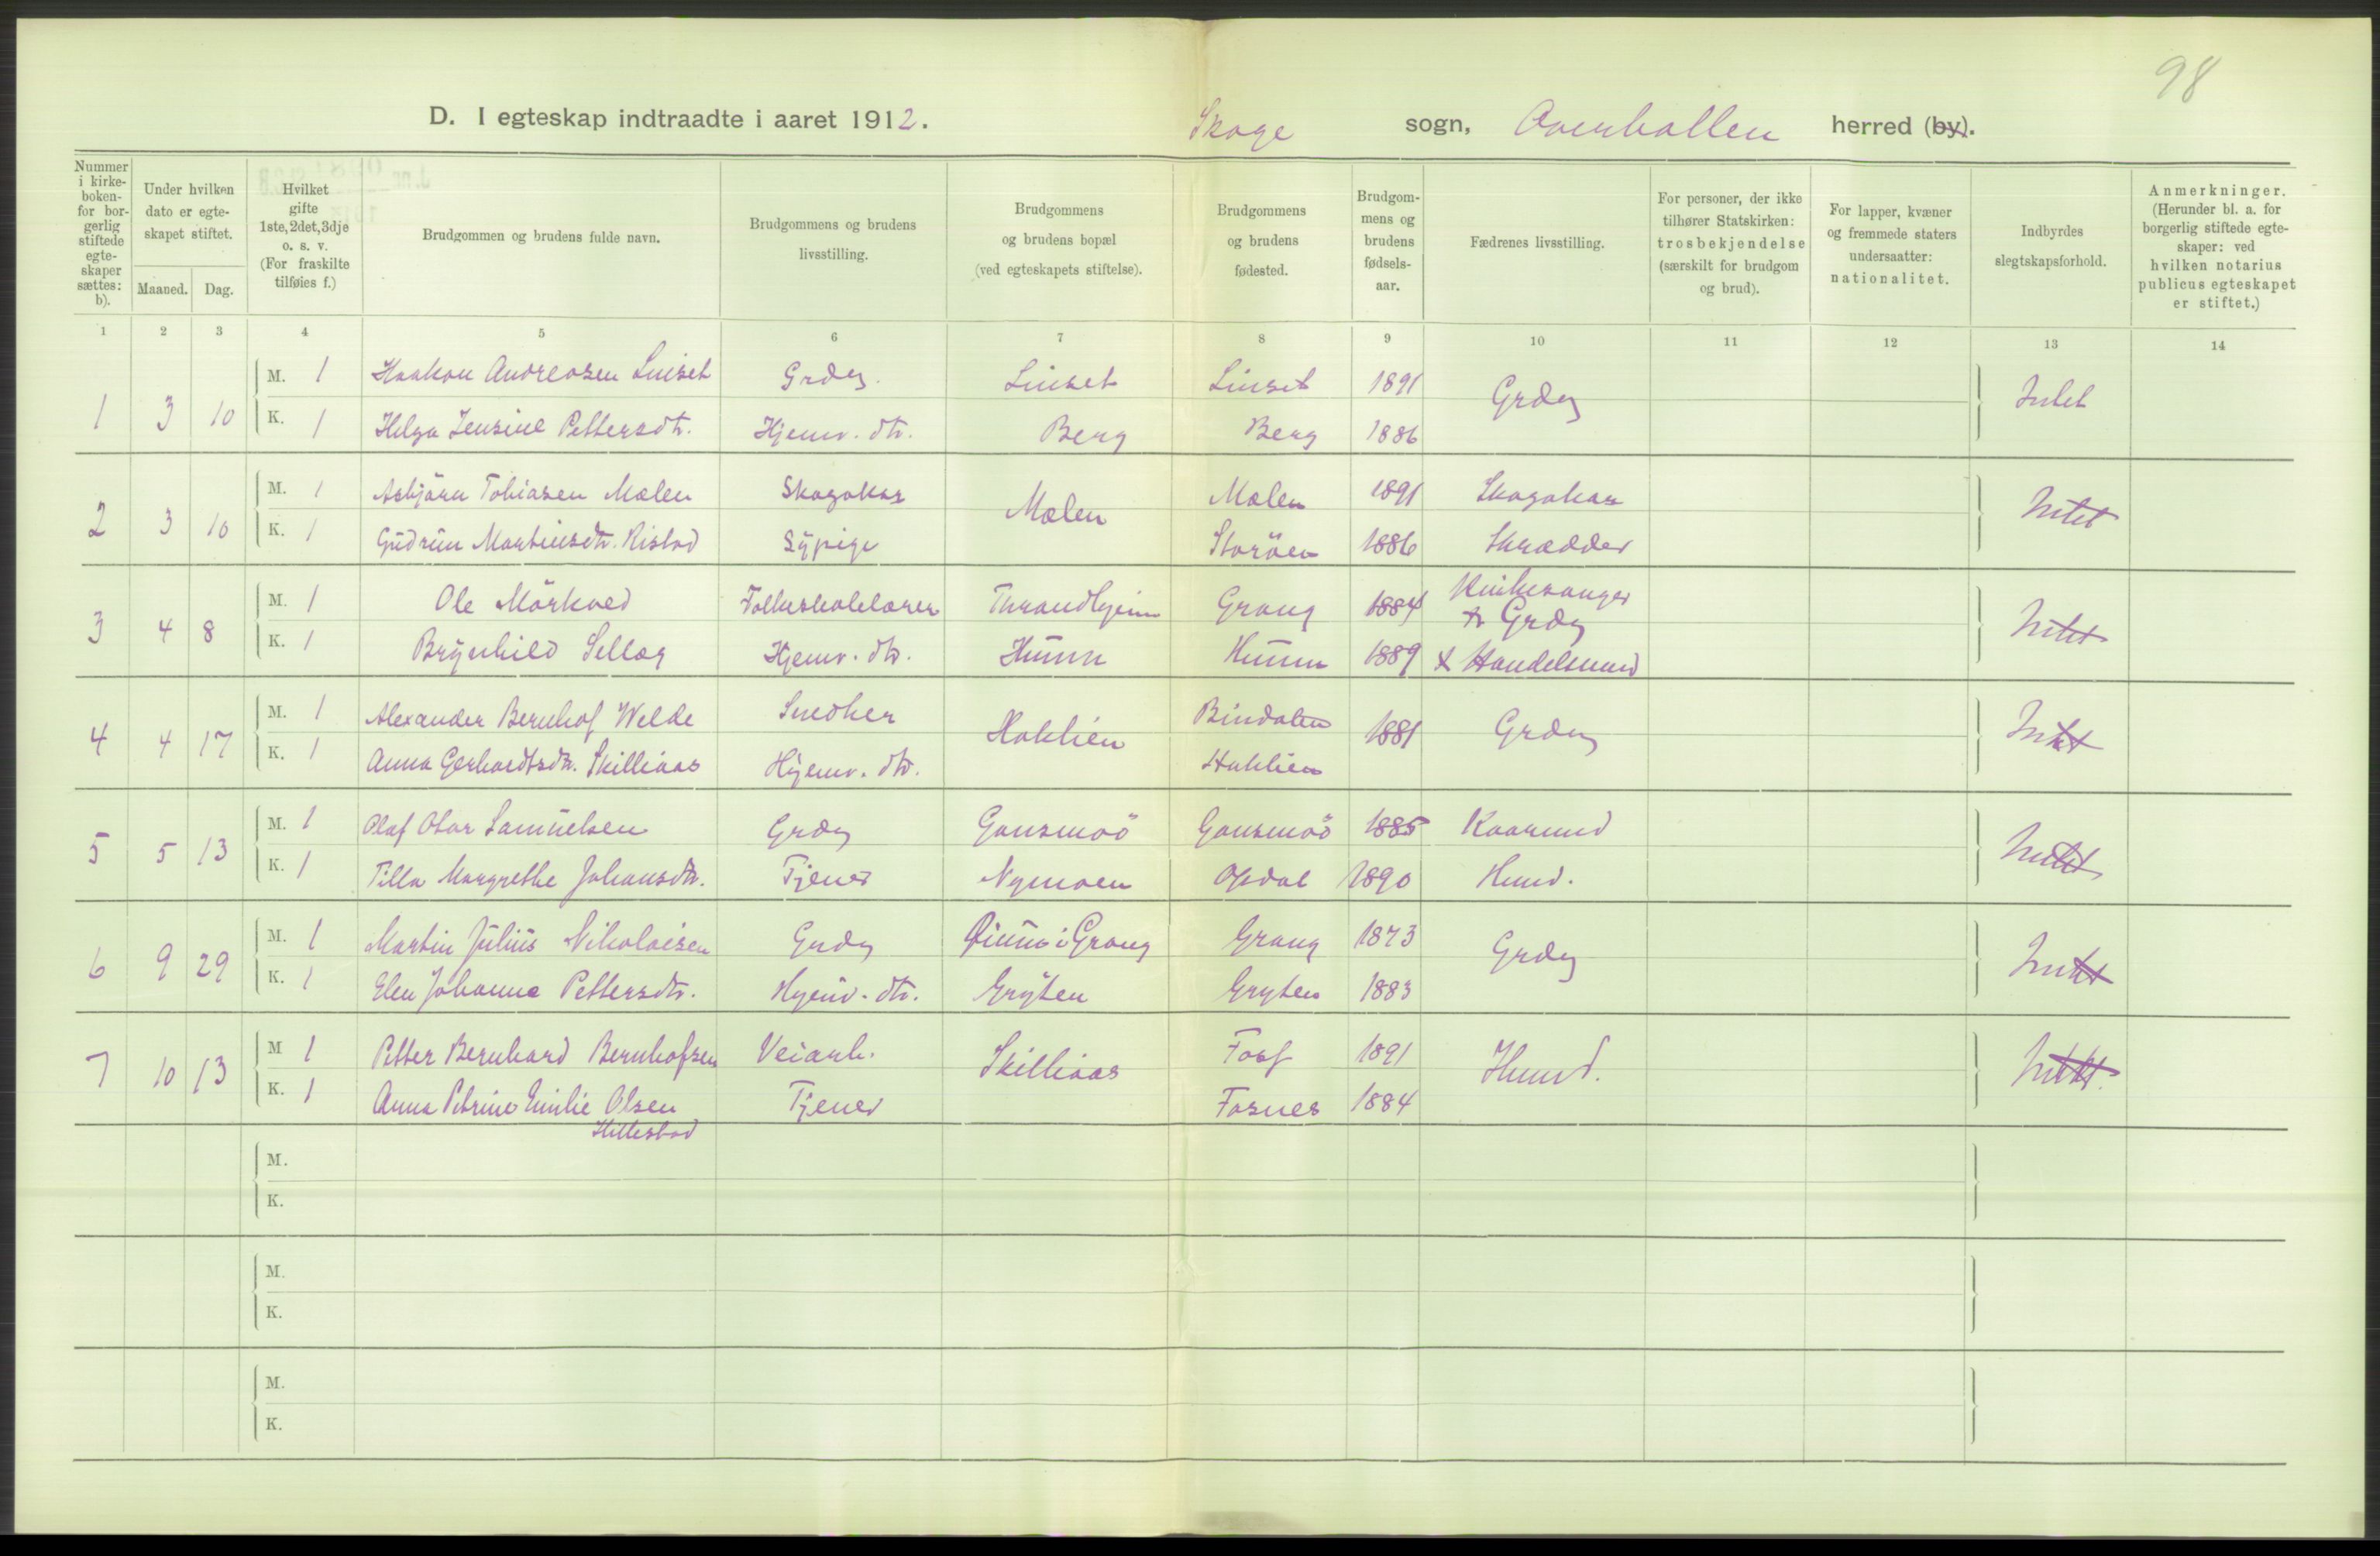 98
D. I egteskap indtraadte i aaret 1912. Skage sogn, Overhallen herred (by).
Nummer i kirke-boken- for bor-gerlig stiftede egte-skaper sættes: b).
Under hvilken dato er egte-skapet stiftet.
Maaned. Dag.
Hvilket gifte 1ste, 2det, 3dje o. s. v. (For fraskilte tilføies f.)
Brudgommen og brudens fulde navn.
Brudgommens og brudens livsstilling.
Brudgommens og brudens bopæl (ved egteskapets stiftelse).
Brudgommens og brudens fødested.
Brudgom-mens og brudens fødsels-aar.
Fædrenes livsstilling.
For personer, der ikke tilhører Statskirken: trosbekjendelse (særskilt for brudgom og brud).
For lapper, kvæner og fremmede staters undersaatter: nationalitet.
Indbyrdes slegtskapsforhold.
Anmerkninger. (Herunder bl. a. for borgerlig stiftede egte-skaper: ved hvilken notarius publicus egteskapet er stiftet.)
1 2 3 4 5 6 7 8 9 10 11 12 13 14
M. 1 Haakon Andreasen Linset Grdg. Linset Linset 1891
1 3 10 Grdg Intet
K. 1 Helga Jensine Pettersdtr. Hjemv. dtr. Berg Berg 1886
M. 1 Asbjörn Tobiasen Mælen Skogakar Mælen 1891 Skogakar
2 3 10 Mælen Intet
K. 1 Gudrun Martinsdtr. Ristad Sypige Storöen 1886 Skrædder
M. 1 Ole Mörkved Folkeskolelærer Throndhjem Grong 1884 Kirkesanger & Grdg
3 4 8 Intet
K. 1 Brynhild Sellæg Hjemv. dtr. Hunn Hunn 1889 Handelsmand
M. 1 Alexander Bernhof Welde Snedker Bindalen
4 4 17 Haklien 1881 Grdg Intet
K. 1 Anna Gerhardtsdtr. Skilliaas Hjemv. dtr. Haklien
M. 1 Olaf Otar Samuelsen Grdg Gansmoö Gansmoö 1885 Kaarmd
5 5 13 Intet
K. 1 Tilla Margrethe Johansdtr. Tjener Nymoen Opdal 1890 Husmd.
M. 1 Martin Julius Nikolaisen Grdg i Grong Grong 1873
6 9 29 Grdg Intet
K. 1 Elen Johanna Pettersdtr. Hjemv. dtr. Gryten Gryten 1883
M 1 Petter Bernhard Bernhofsen Veiarb. 1891
7 10 13 Skilliaas Husmd. Intet
K. 1 Anna Petrine Emilie Olsen Tjener Fosnes 1884
Hillestad
M.
K.
M.
K.
M.
K.